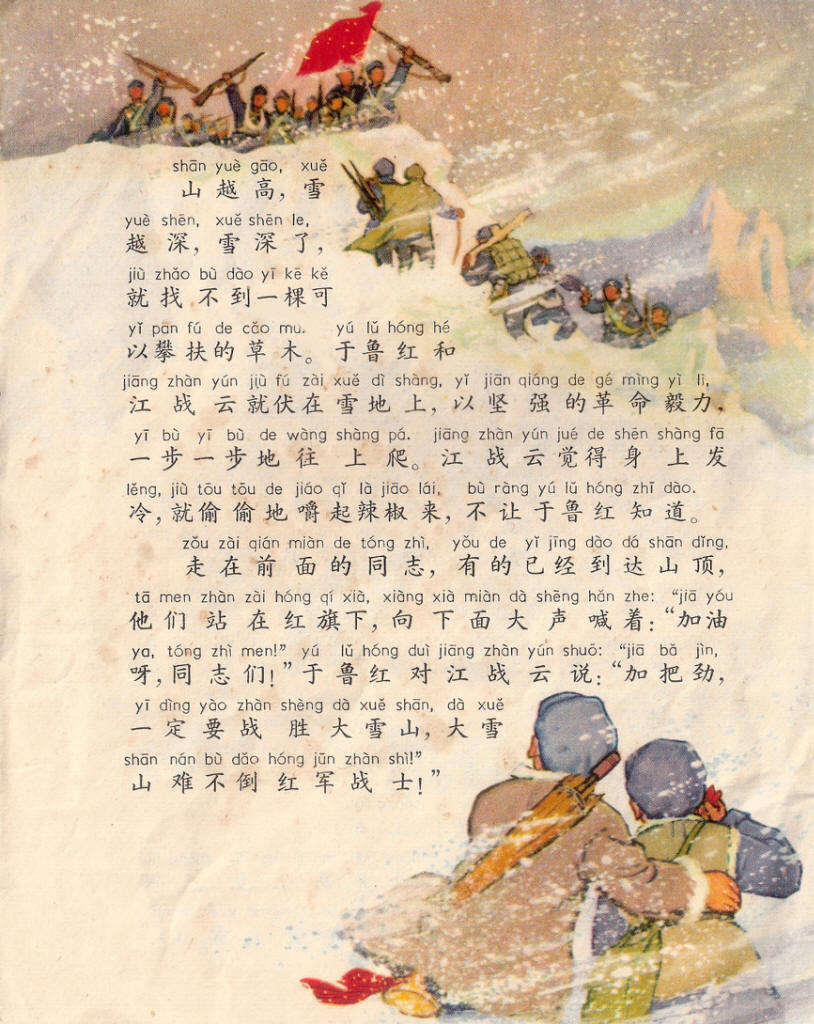 shān yuè gāo, xuě
山越高，雪
yuè shēn, xuě shēn le,
越深，雪深了，
jiù zhǎo bù dào yī kē kě
就找不到一棵可
yǐ pān fú de cǎo mu. yú lǔ hóng hé
以攀扶的草木。于鲁红和
jiāng zhàn yún jiù fú zài xuě dì shàng, yǐ jiān qiáng de gé mìng yì lì,
江战云就伏在雪地上，以坚强的革命毅力，
yī bù yī bù de wàng shàng pá. jiāng zhàn yún jué de shēn shàng fā
一步一步地往上爬。江战云觉得身上发
lěng, jiù tōu tōu de jiáo qǐ là jiāo lái, bù ràng yú lǔ hóng zhī dào.
冷，就偷偷地嚼起辣椒来，不让于鲁红知道。
zǒu zài qián miàn de tóng zhì, yǒu de yǐ jīng dào dá shān dǐng,
走在前面的同志，有的已经到达山顶，
tā men zhàn zài hóng qí xià, xiàng xià miàn dà shēng hǎn zhe: “jiā yóu
他们站在红旗下，向下面大声喊着：“加油
ya, tóng zhì men!” yú lǔ hóng duì jiāng zhàn yún shuō: “jiā bǎ jìn,
呀，同志们！”于鲁红对江战云说：“加把劲，
yī dìng yào zhàn shèng dà xuě shān, dà xuě
一定要战胜大雪山，大雪
shān nán bù dǎo hóng jūn zhàn shì!”
山难不倒红军战士！”